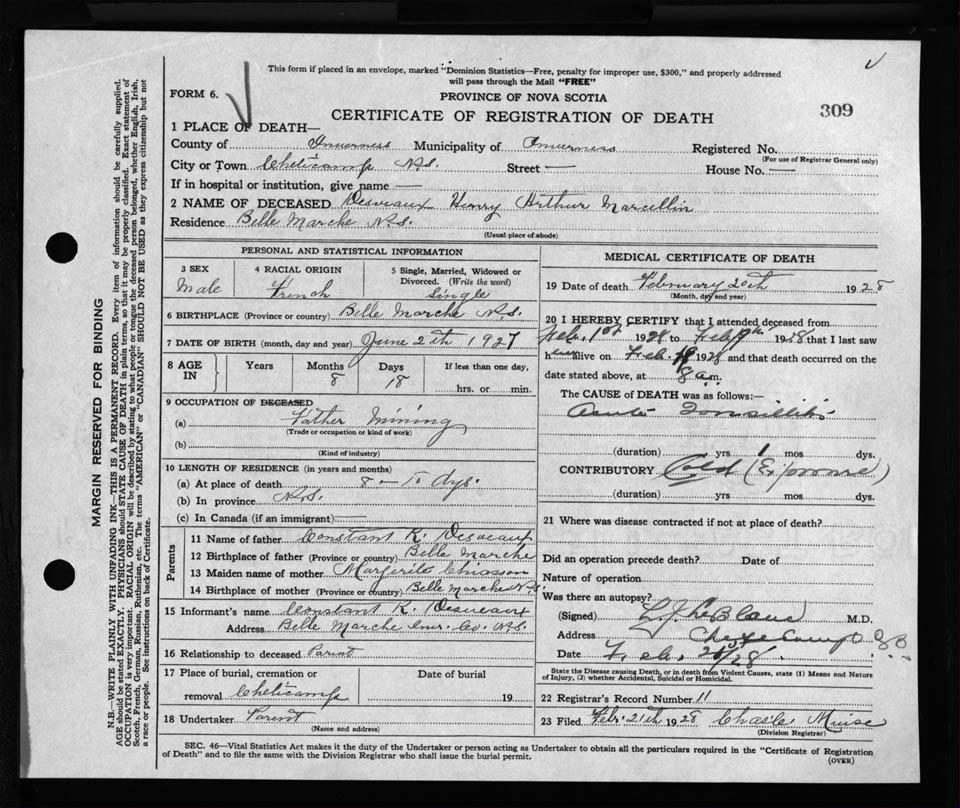 This form if placed in an envelope, marked "Dominion Statistics—Free, penalty for improper use, $300," and properly addressed
will pass through the Mail "FREE"
FORM 6.
PROVINCE OF NOVA SCOTIA
CERTIFICATE OF REGISTRATION OF DEATH
309
1 PLACE OF DEATH—
County of Inverness Municipality of Inverness Registered No.
(For use of Registrar General only)
City or Town Cheticamp N.S. Street — House No. —
If in hospital or institution, give name —
2 NAME OF DECEASED Desveaux Henry Arthur Marcellin
Residence Belle Marche N.S.
(Usual place of abode)
PERSONAL AND STATISTICAL INFORMATION
3 SEX
Male
4 RACIAL ORIGIN
French
5 Single, Married, Widowed or
Divorced. (Write the word)
Single
6 BIRTHPLACE (Province or country) Belle Marche N.S.
7 DATE OF BIRTH (month, day and year) June 2th 1927
8 AGE IN
Years
Months
8
Days
18
If less than one day,
hrs. or min.
9 OCCUPATION OF DECEASED
(a) Father Mining
(Trade or occupation or kind of work)
(b)
(Kind of industry)
10 LENGTH OF RESIDENCE (in years and months)
(a) At place of death 8 — dys.
(b) In province N.S.
(c) In Canada (if an immigrant) —
Parents
11 Name of father Constant K. Desveaux
12 Birthplace of father (Province or country) Belle Marche
13 Maiden name of mother Margerite Chiasson
14 Birthplace of mother (Province or country) Belle Marche N.S.
15 Informant's name Constant K. Desveaux
Address Belle Marche Inv. Co. N.S.
16 Relationship to deceased Parent
17 Place of burial, cremation or
removal Cheticamp
Date of burial
19
18 Undertaker Parent
(Name and address)
MEDICAL CERTIFICATE OF DEATH
19 Date of death February 20th 1928
(Month, day and year)
20 I HEREBY CERTIFY that I attended deceased from
Feb. 1st 1928 to Feb 1928 that I last saw
h alive on Feb. 1928 and that death occurred on the
date stated above, at 8 a.m.
The CAUSE of DEATH was as follows:—
Acute Tonsillitis
(duration) yrs 1 mos dys.
CONTRIBUTORY Cold (Exposure)
(duration) yrs mos dys.
21 Where was disease contracted if not at place of death?
Did an operation precede death? Date of
Nature of operation
Was there an autopsy?
(Signed) L. J. LeBlanc M.D.
Address Cheticamp
Date Feb. 28
State the Disease causing Death, or in death from Violent Causes, state (1) Means and Nature
of Injury, (2) whether Accidental, Suicidal or Homicidal.
22 Registrar's Record Number 11
23 Filed Feb. 21th 1928 Chas. Muise
(Division Registrar)
SEC. 46—Vital Statistics Act makes it the duty of the Undertaker or person acting as Undertaker to obtain all the particulars required in the "Certificate of Registration
of Death" and to file the same with the Division Registrar who shall issue the burial permit.
(OVER)
MARGIN RESERVED FOR BINDING
N.B.—WRITE PLAINLY WITH UNFADING INK—THIS IS A PERMANENT RECORD. Every item of information should be carefully supplied.
AGE should be stated EXACTLY. PHYSICIANS should STATE CAUSE OF DEATH in plain terms, so that it may be properly classified. Exact statement of
OCCUPATION is very important. RACIAL ORIGIN will be described by stating to what people or tongue the deceased person belonged, whether English, Irish,
Scotch, French, German, Russian, Ruthenian, etc. The terms "AMERICAN" or "CANADIAN" SHOULD NOT BE USED as they express citizenship but not
a race or people. See instructions on back of Certificate.